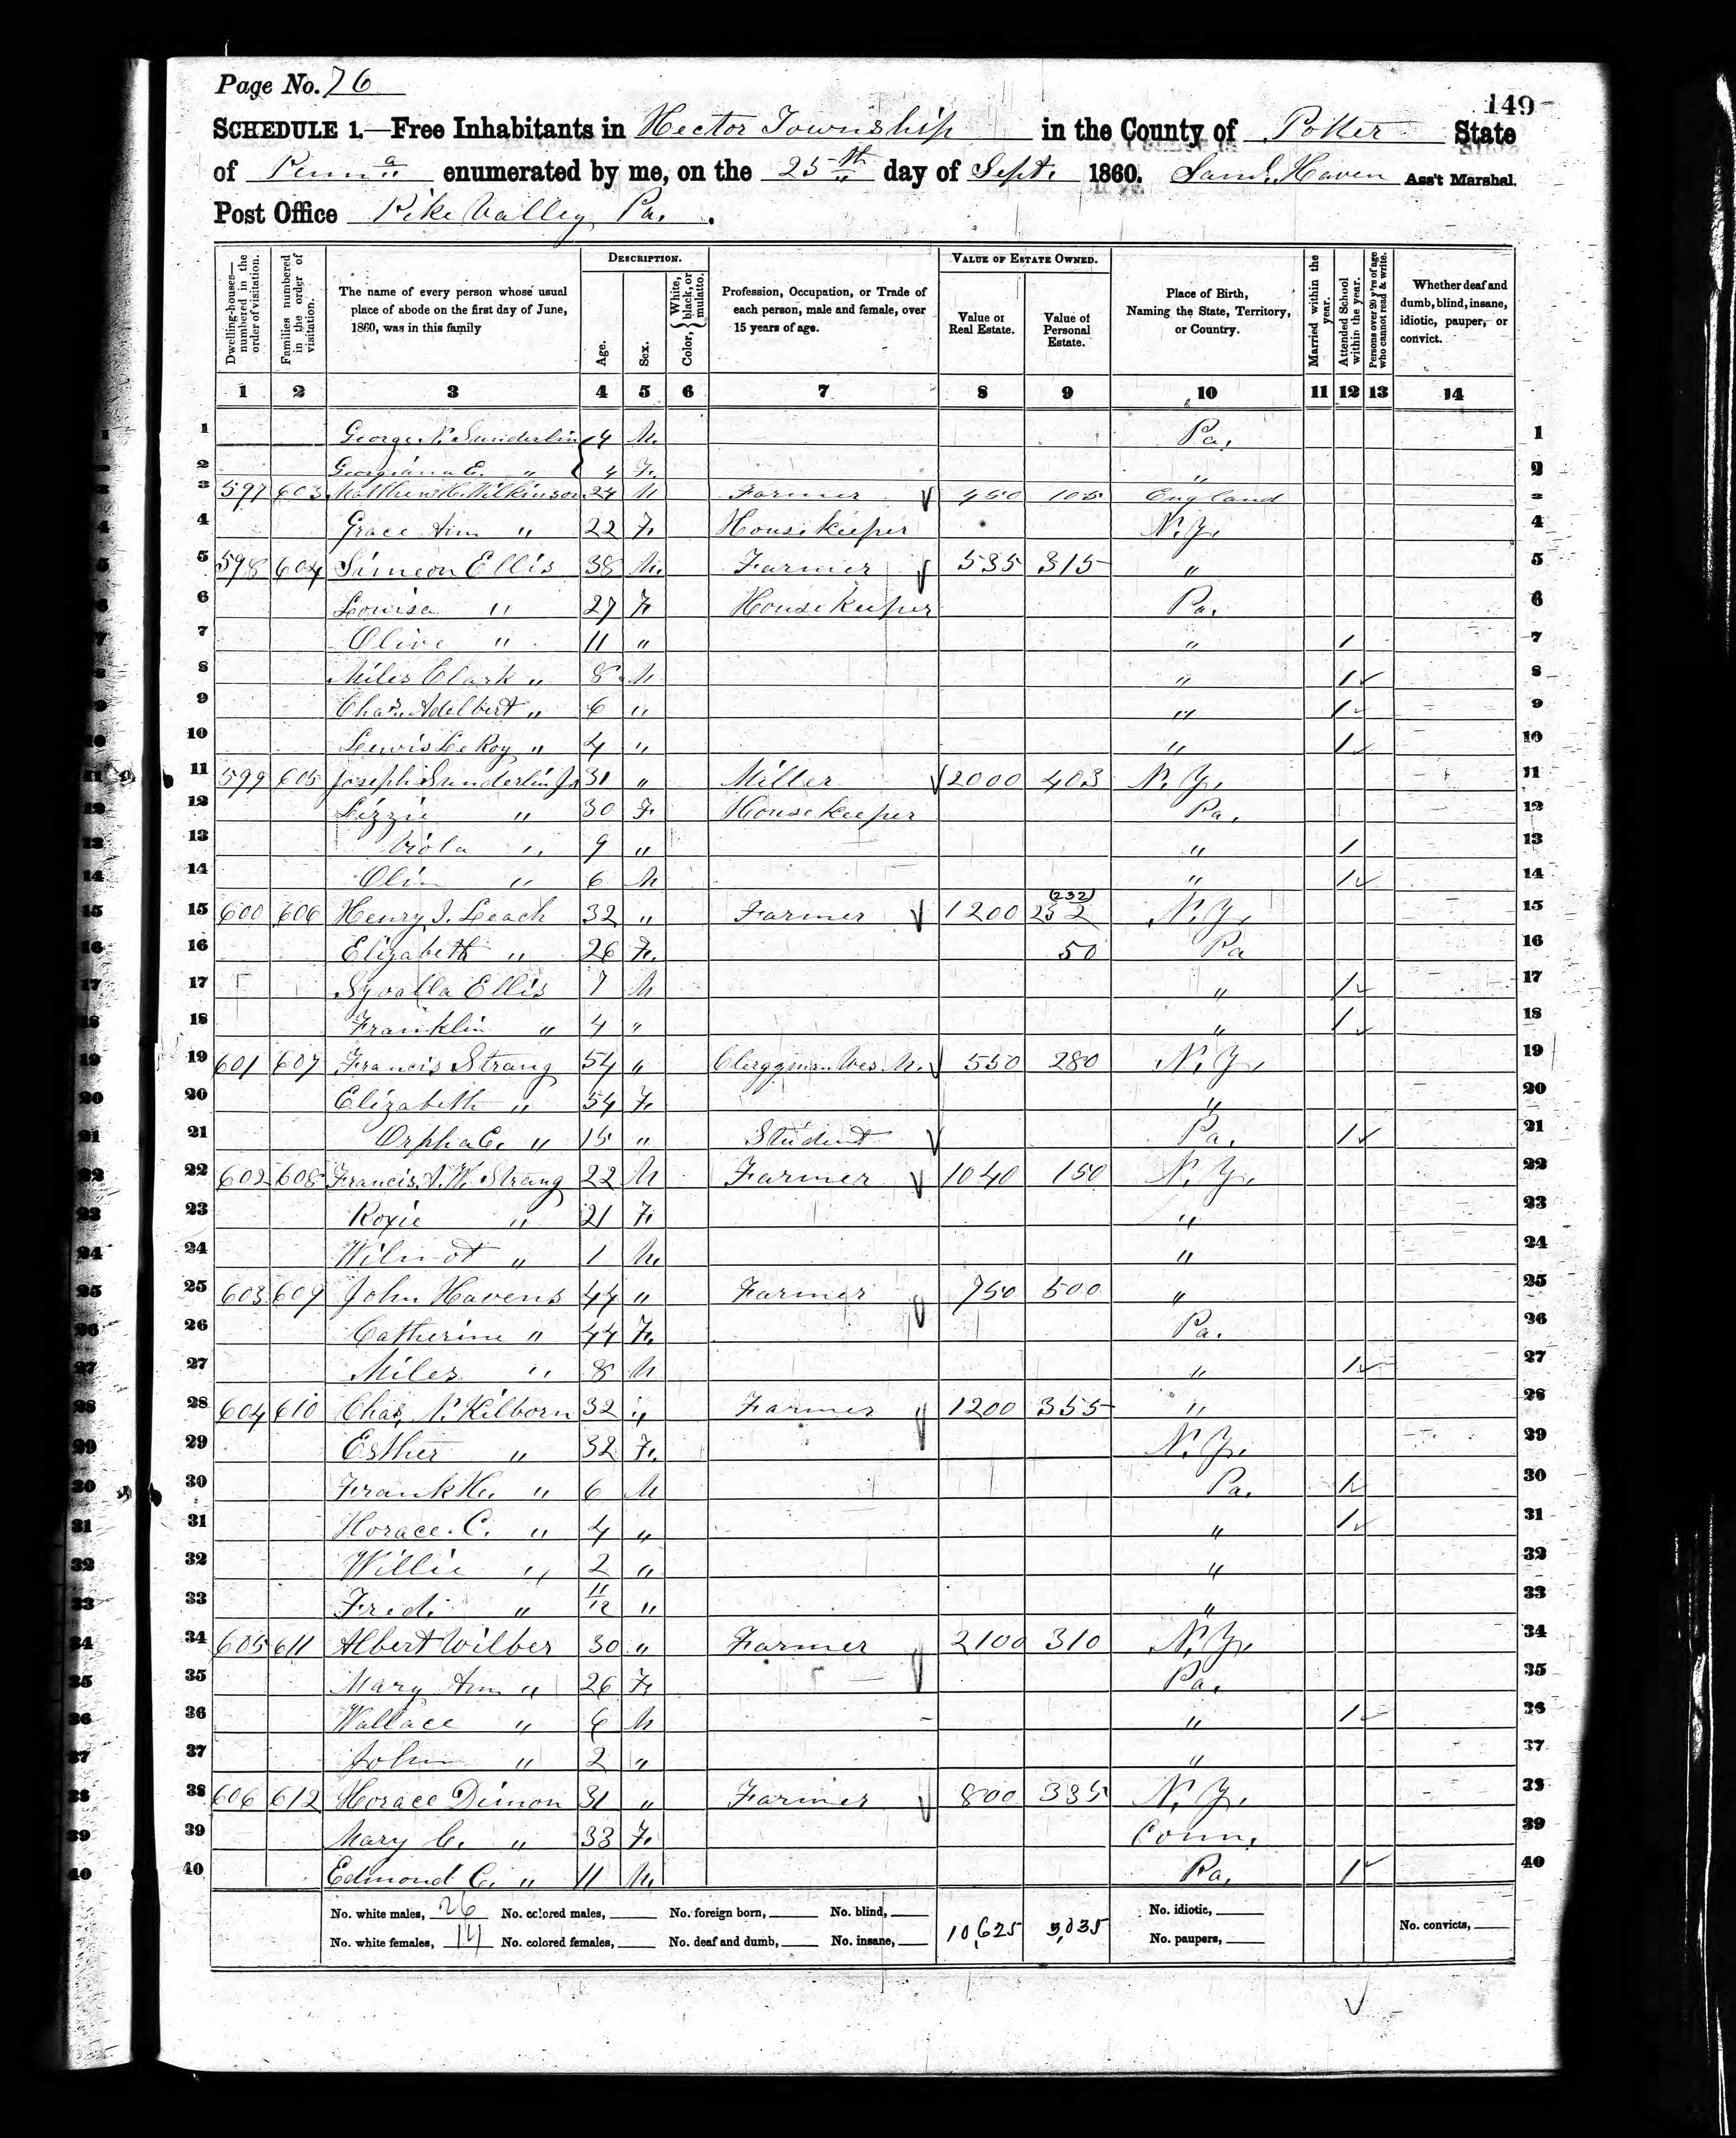 Page No. 76
149
SCHEDULE 1.—Free Inhabitants in Hector Township in the County of Potter State
of Penna enumerated by me, on the 25th day of Sept. 1860. Saml. Haven Ass't Marshal.
Post Office Pike Valley Pa.
Dwelling-houses—numbered in the order of visitation.
Families numbered in the order of visitation.
The name of every person whose usual place of abode on the first day of June, 1860, was in this family
DESCRIPTION.
Age.
Sex.
Color, { White, black, or mulatto.
Profession, Occupation, or Trade of each person, male and female, over 15 years of age.
VALUE OF ESTATE OWNED.
Value of Real Estate.
Value of Personal Estate.
Place of Birth, Naming the State, Territory, or Country.
Married within the year.
Attended School within the year.
Persons over 20 y'rs of age who cannot read & write.
Whether deaf and dumb, blind, insane, idiotic, pauper, or convict.
1 2 3 4 5 6 7 8 9 10 11 12 13 14
1 George N. Sunderlin 4 M. Pa. 1
2 Georgiana E. " 4 F. " 2
3 597 603 Matthew H. Wilkinson 24 M Farmer 450 105 England
4 Grace Ann " 22 F. Housekeeper N.Y. 4
5 598 604 Simeon Ellis 38 M. Farmer 535 315 " 5
6 Louisa " 27 F. Housekeeper Pa. 6
7 Olive " 11 " " / 7
8 Miles Clark " 8 M " / 8
9 Chas. Adelbert " 6 " " / 9
10 Lewis LeRoy " 4 " " / 10
11 599 605 Joseph Sunderlin Jr 31 " Miller 2000 403 N.Y. 11
12 Lizzie " 30 F. Housekeeper Pa. 12
13 Viola " 9 " " / 13
14 Olin " 6 M " / 14
15 600 606 Henry J. Leach 32 " Farmer 1200 252 (232) N.Y. 15
16 Elizabeth " 26 F. 50 Pa 16
17 Syvalla Ellis 7 M " / 17
18 Franklin " 4 " " / 18
19 601 607 Francis Strang 54 " Clergyman Wes. M. 550 280 N.Y. 19
20 Elizabeth " 54 F. " 20
21 Orpha C. " 15 " Student Pa. / 21
22 602 608 Francis A. W. Strang 22 M Farmer 1040 150 N.Y. 22
23 Roxie " 21 F. " 23
24 Wilmot " 1 M. " 24
25 603 609 John Havens 44 " Farmer 750 500 " 25
26 Catherine " 44 F. Pa. 26
27 Miles " 8 M " / 27
28 604 610 Chas. N. Kilborn 32 " Farmer 1200 355 " 28
29 Esther " 32 F. N.Y. 29
30 Frank H. " 6 M Pa. / 30
31 Horace C. " 4 " " / 31
32 Willie " 2 " " 32
33 Fred. " 11/12 " " 33
34 605 611 Albert Wilber 30 " Farmer 2100 310 N.Y. 34
35 Mary Ann " 26 F. Pa. 35
36 Wallace " 6 M " / 36
37 John " 2 " " 37
38 606 612 Horace Dimon 31 " Farmer 800 335 N.Y. 38
39 Mary C. " 33 F. Conn. 39
40 Edmond C. " 11 M. Pa. / 40
No. white males, 26 No. colored males, No. foreign born, No. blind, 10,625 3,035 No. idiotic, No. convicts,
No. white females, 14 No. colored females, No. deaf and dumb, No. insane, No. paupers,